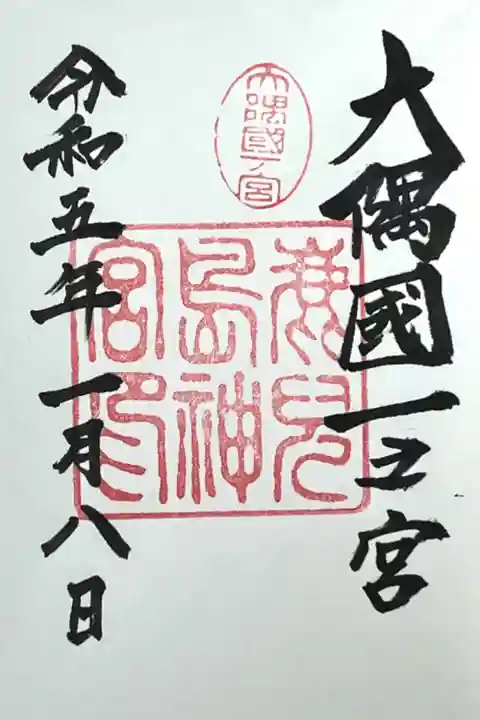 大隅國一之宮
大隅國一ノ宮
鹿兒
島神
宮印
令和五年一月八日